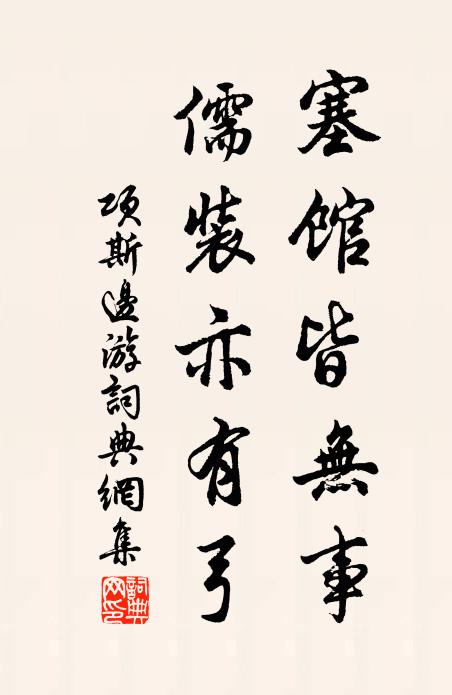 塞館皆無事
儒裝亦有弓
項斯邊游詞典網集
詞典網印